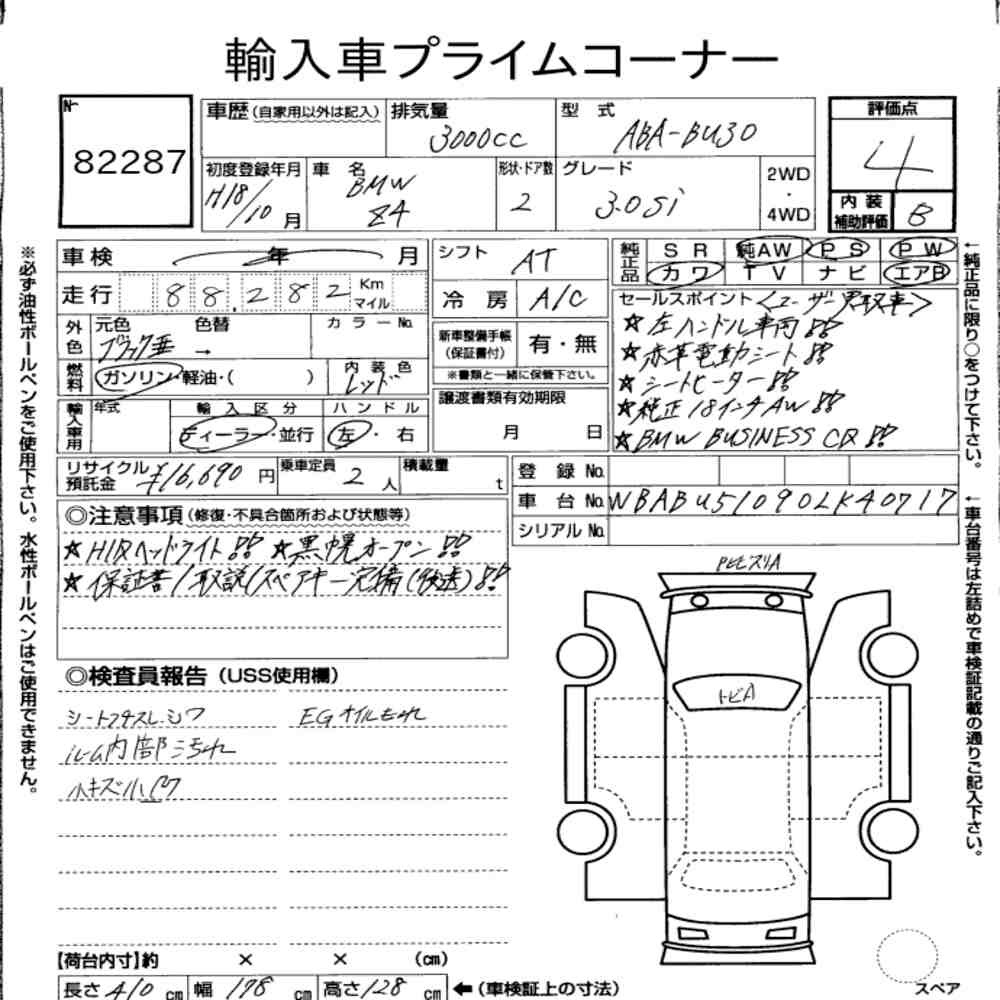 輸入車プライムコーナー
№ 82287
車歴(自家用以外は記入) 排気量 3000cc 型式 ABA-BU30
評価点 4
初度登録年月 H18/10月 車名 BMW Z4 形状・ドア数 2 グレード 3.0si 2WD・4WD
内装補助評価 B
車検 年 月
シフト AT
純正品 SR 純AW PS PW
カワ TV ナビ エアB
走行 88,282 Km マイル
冷房 A/C
セールスポイント <ユーザー買取車>
☆左ハンドル車両!!
☆赤革電動シート!!
☆シートヒーター!!
☆純正18インチAW!!
☆BMW BUSINESS CD!!
外色 元色 ブラック 色替 → カラーNo.
新車整備手帳(保証書付) 有・無
※書類と一緒に保管下さい。
燃料 ガソリン・軽油・( ) 内装色 レッド
譲渡書類有効期限 月 日
輸入車用 年式 輸入区分 ディーラー・並行 ハンドル 左・右
リサイクル預託金 ¥16,690円 乗車定員 2人 積載量 t
登録No.
車台No. WBABU51090LK40717
シリアルNo.
◎注意事項(修復・不具合箇所および状態等)
☆HIDヘッドライト!! ☆黒幌オープン!!
☆保証書/取説/スペアキー完備(後送)!!
◎検査員報告(USS使用欄)
シートスレ・シワ EGオイルもれ
ルーム内部汚れ
小キズ小凹
トビA
【荷台内寸】約 × × (cm)
長さ 410cm 幅 178cm 高さ 128cm ←(車検証上の寸法)
スペア
※必ず油性ボールペンをご使用下さい。水性ボールペンはご使用できません。
←純正品に限り○をつけて下さい。
←車台番号は左詰めで車検証記載の通りご記入下さい。